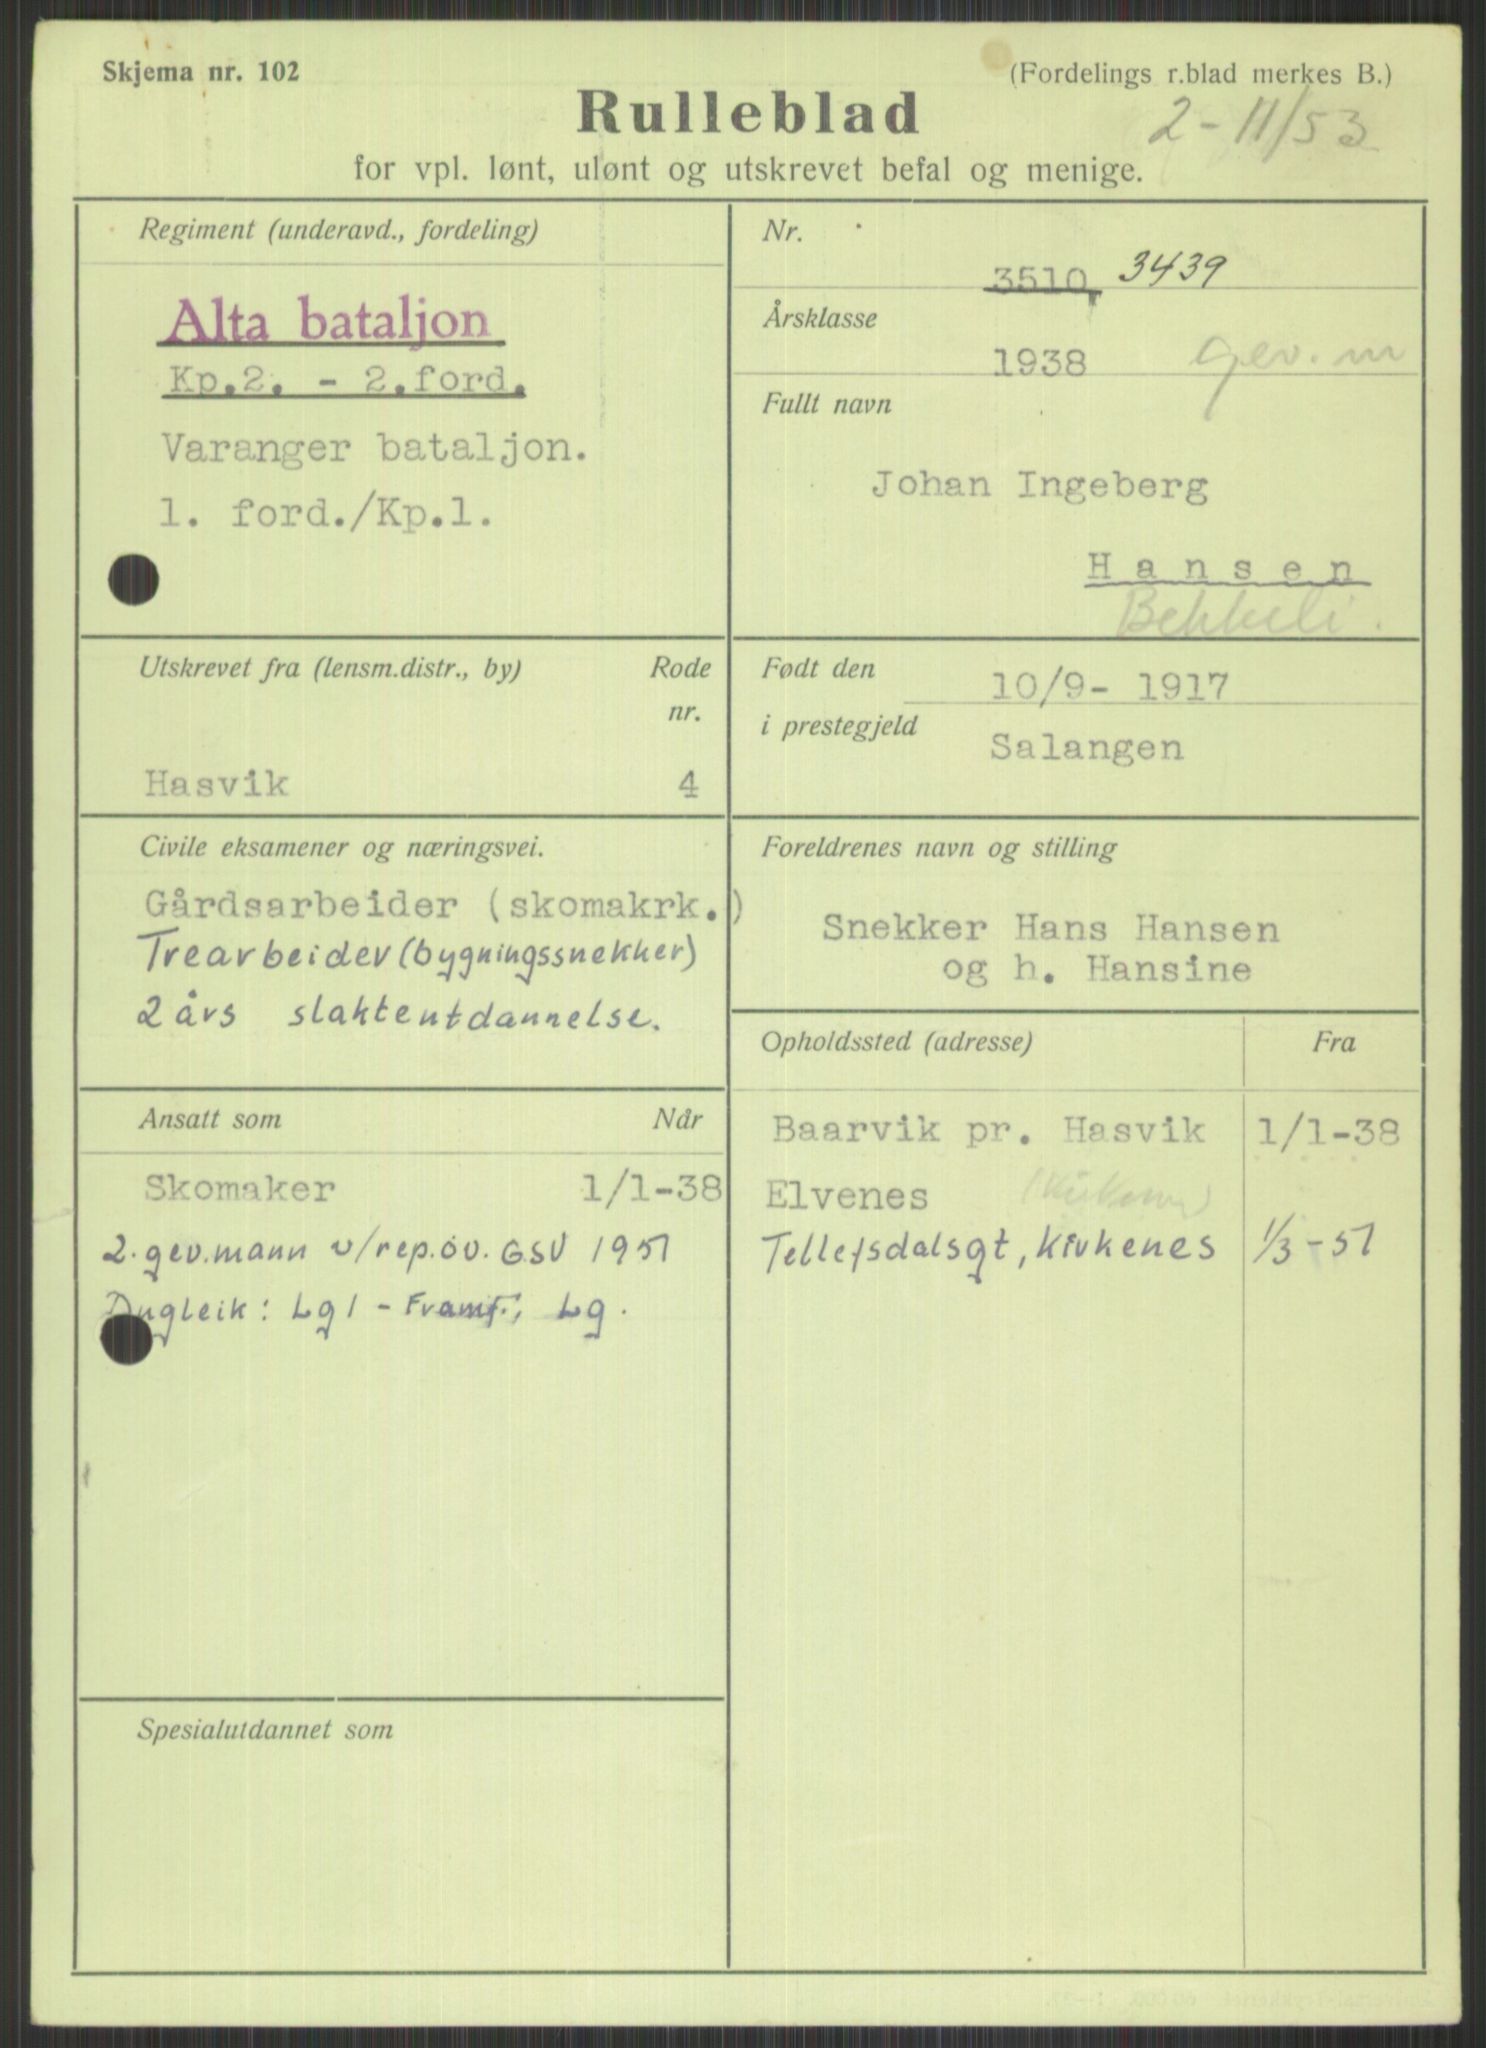 Skjema nr. 102
(Fordelings r.blad merkes B.)
Rulleblad
2-11/53
for vpl. lønt, ulønt og utskrevet befal og menige.
Regiment (underavd., fordeling)
Alta bataljon
Kp.2. - 2.ford.
Varanger bataljon.
1. ford./Kp.1.
Nr.
3510, 3439
Årsklasse
1938 gev. m
Fullt navn
Johan Ingeberg
Hansen
Bekkeli.
Utskrevet fra (lensm.distr., by) Rode nr.
Hasvik 4
Født den 10/9- 1917
i prestegjeld Salangen
Civile eksamener og næringsvei.
Gårdsarbeider (skomakrk.)
Trearbeider (bygningssnekker)
2 års slakteutdannelse.
Foreldrenes navn og stilling
Snekker Hans Hansen
og h. Hansine
Ansatt som Når
Skomaker 1/1-38
2. gev.mann v/rep.öv. GSV 1951
Dugleik: Lg1 - Framf., Lg.
Opholdssted (adresse) Fra
Baarvik pr. Hasvik 1/1-38
Elvenes
Tellefsdalsgt, Kirkenes 1/3-51
Spesialutdannet som